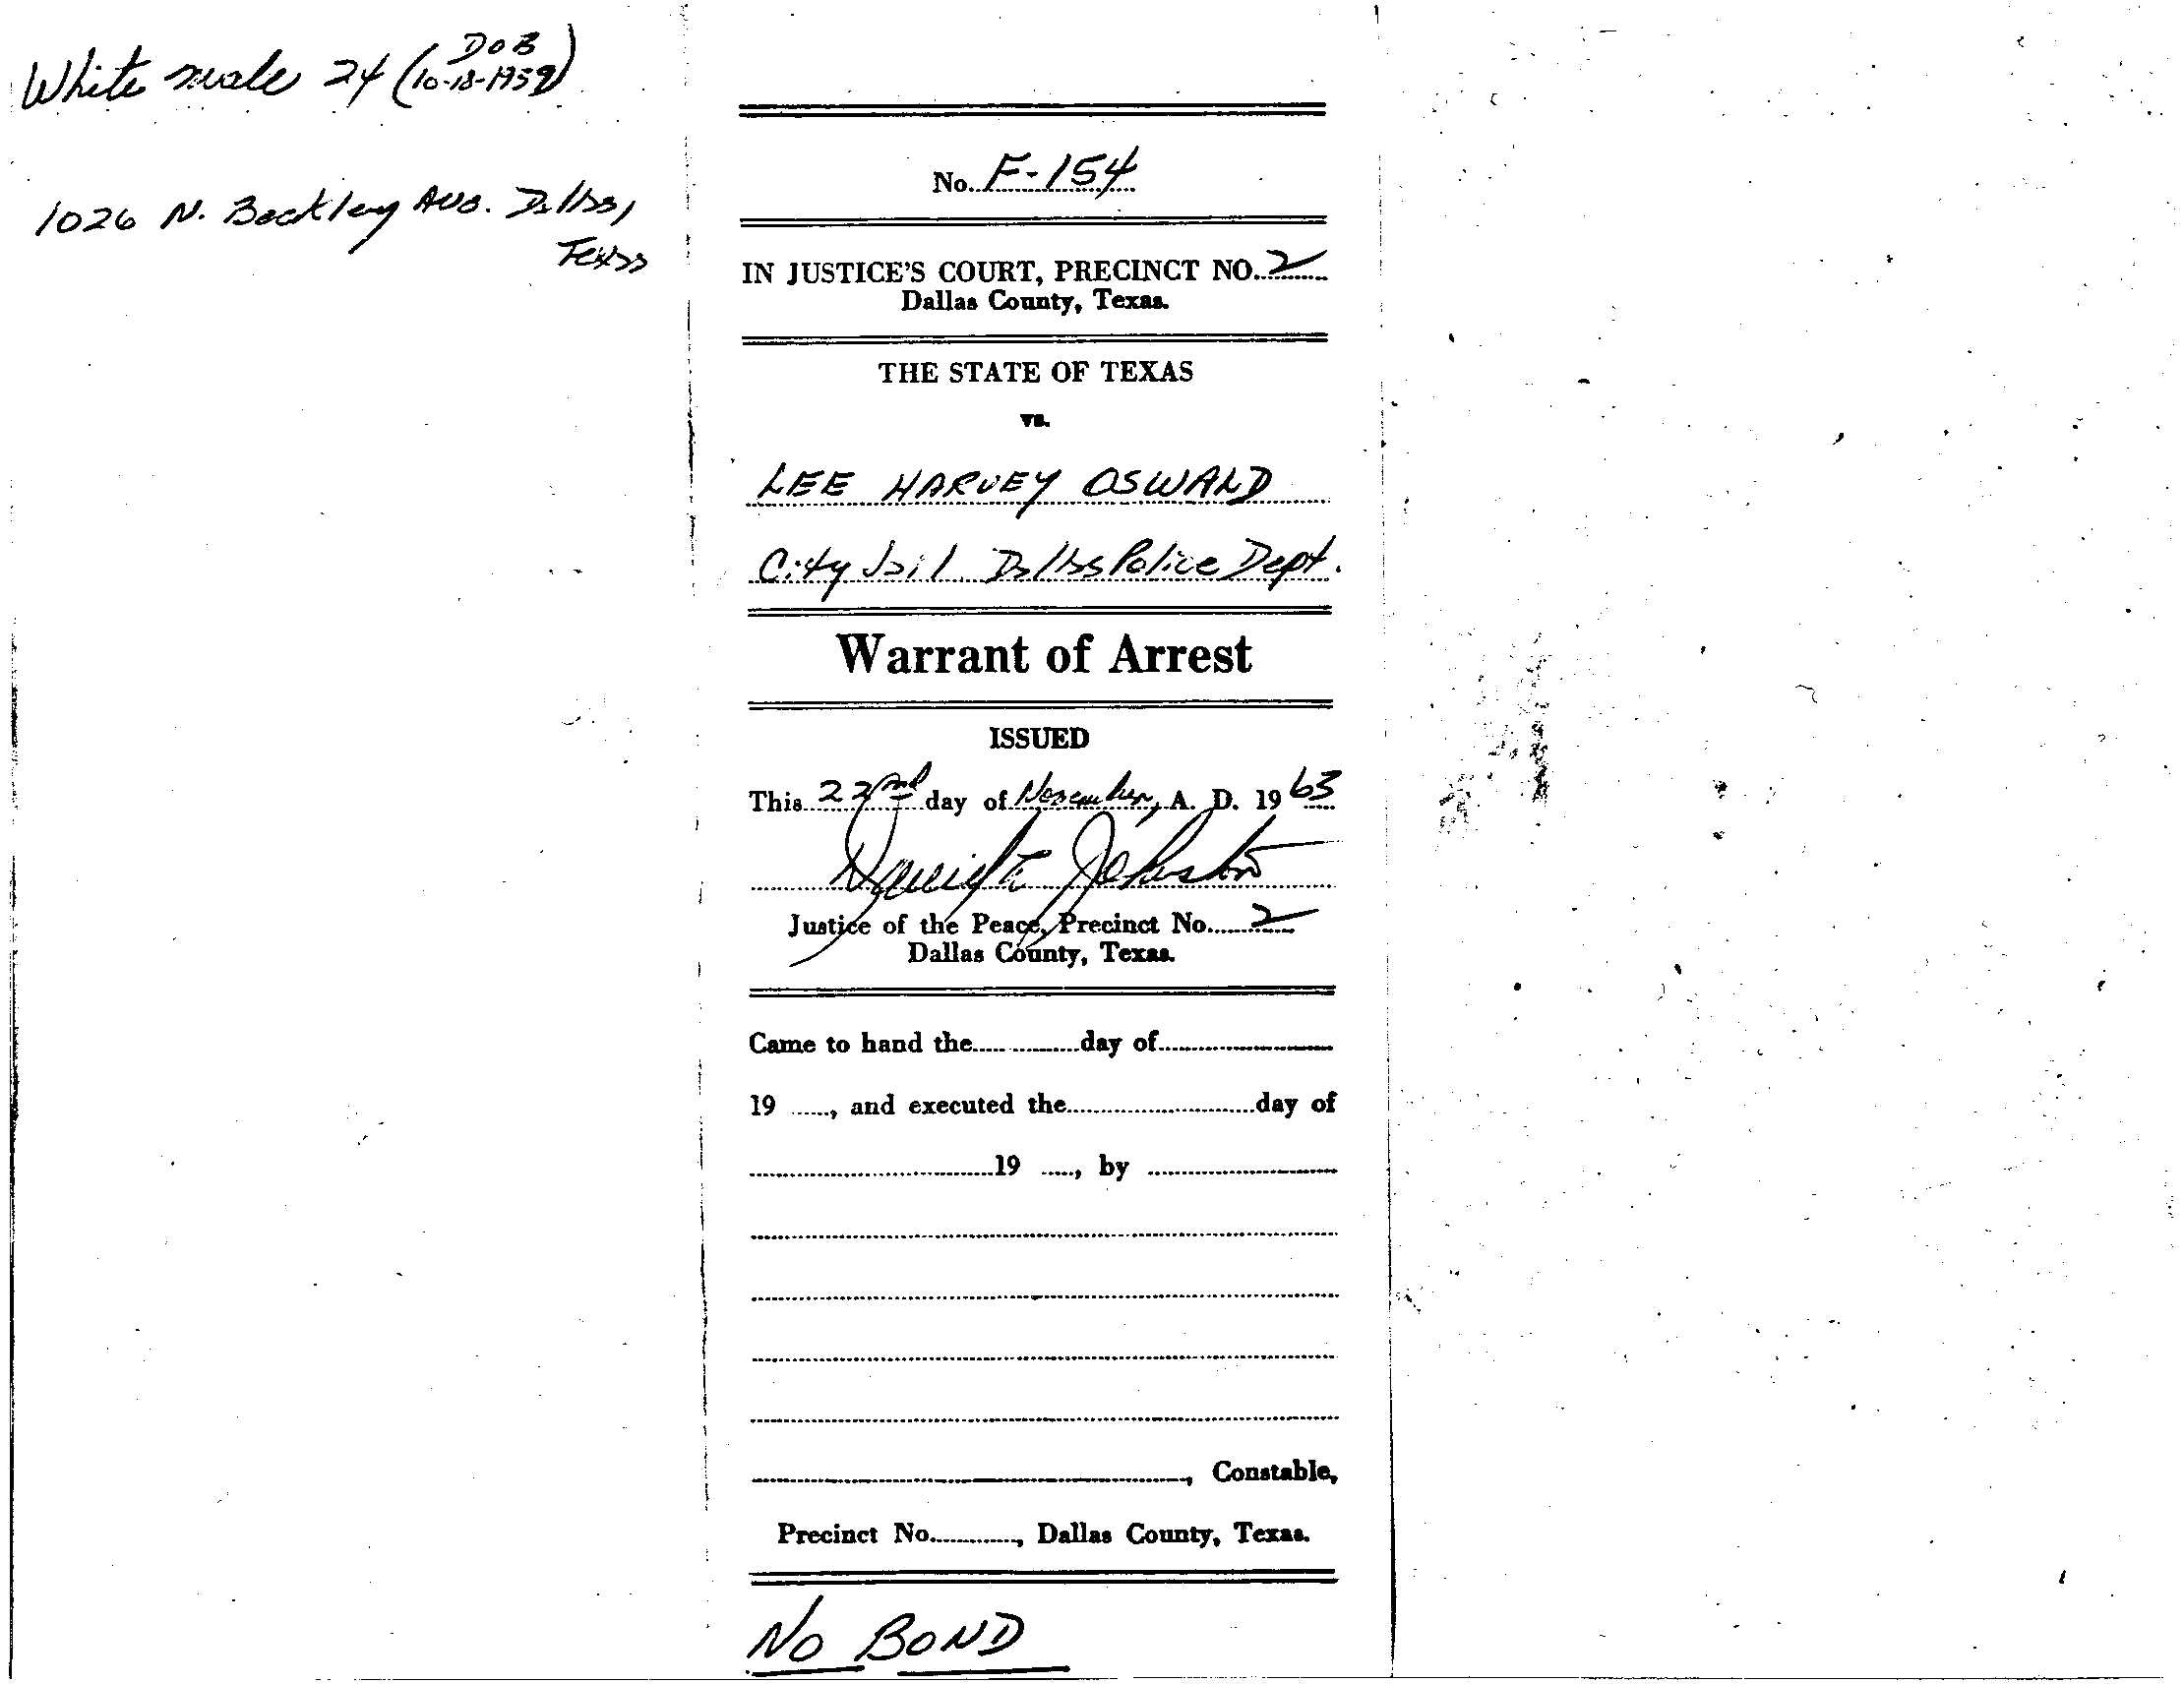 White male 24 (DOB
10-18-1959)
1026 N. Beckley Ave. Dallas,
Texas
No. F-154
IN JUSTICE'S COURT, PRECINCT NO. 2
Dallas County, Texas.
THE STATE OF TEXAS
vs.
LEE HARVEY OSWALD
City Jail Dallas Police Dept.
Warrant of Arrest
ISSUED
This 22nd day of November, A. D. 1963
David L. Johnston
Justice of the Peace, Precinct No. 2
Dallas County, Texas.
Came to hand the day of
19 , and executed the day of
19 , by
, Constable,
Precinct No. , Dallas County, Texas.
NO BOND